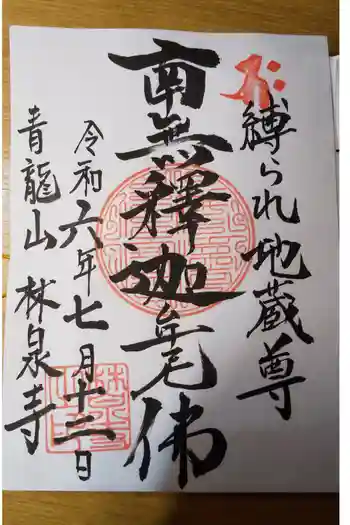 縛られ地蔵尊
南無釋迦牟尼佛
令和六年七月十二日
青龍山林泉寺